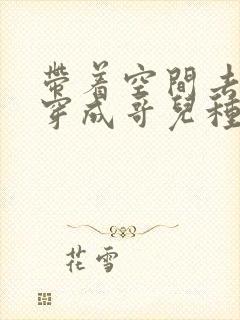 帶着空間去
穿成哥兒種
花雪